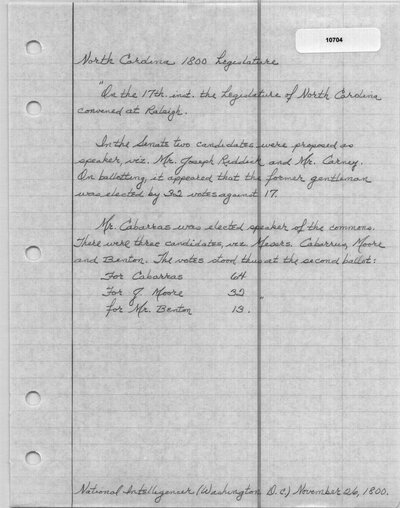 10704
North Carolina 1800 Legislature
"On the 17th. inst. the Legislature of North Carolina
convened at Raleigh.
In the Senate two candidates were proposed as
speaker, viz. Mr. Joseph Riddick and Mr. Carney.
On ballotting, it appeared that the former gentleman
was elected by 32 votes against 17.
Mr. Cabarras was elected speaker of the commons.
There were three candidates, viz. Messrs. Cabarrus, Moore
and Benton. The votes stood thus at the second ballot:
For Cabarras 64
For J. Moore 32
for Mr. Benton 13."
National Intelligencer (Washington, D.C.) November 26, 1800.